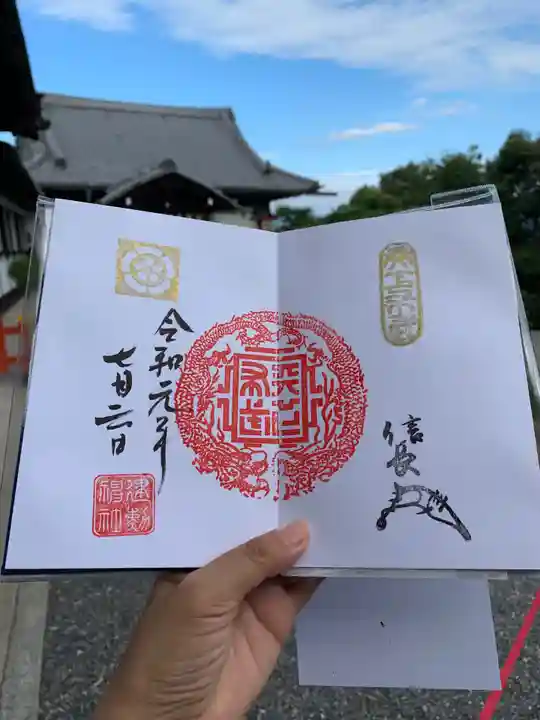 令和元年
七月二日
建勲神社
天下布武
信長